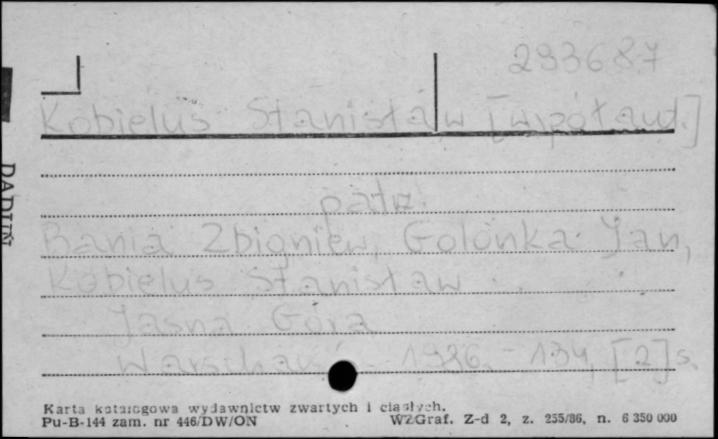 293687
Kobielus Stanisław [współaut.]
patrz:
Bania Zbigniew, Golonka Jan,
Kobielus Stanisław
Jasna Góra
1986. - 134, [2] s.
Karta katalogowa wydawnictw zwartych i ciągłych.
Pu-B-144 zam. nr 446/DW/ON WZGraf. Z-d 2, z. 255/86, n. 6 350 000